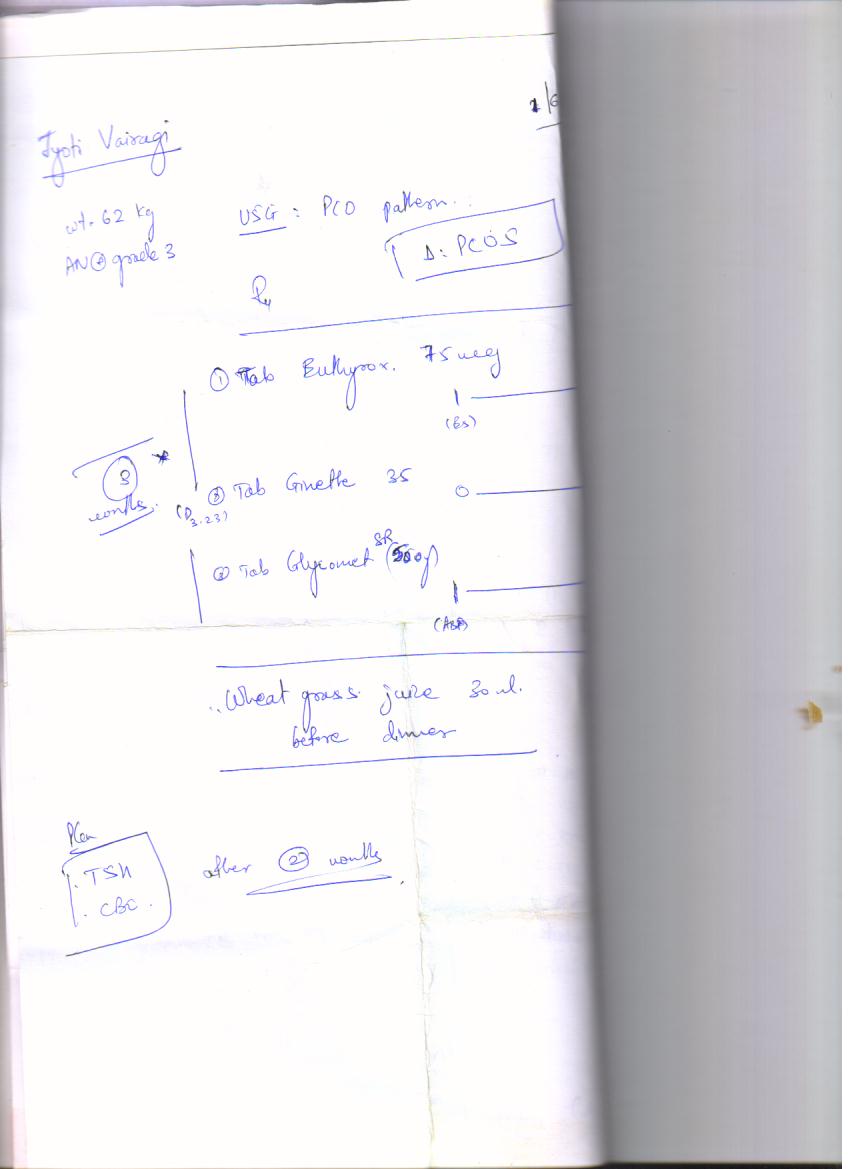 Jyoti Vairagi
wt. 62 kg
AN ⊕ grade 3
USG : PCO pattern.
Δ: PCOS
Rx
① Tab Euthyrox. 75 mcg
1
② Tab Ginette 35
0
(D3-23)
3
months.
③ Tab Glycomet SR (500g)
1
Wheat grass juice 30 ml.
before dinner
Plan
. TSH
. CBC.
after ② months